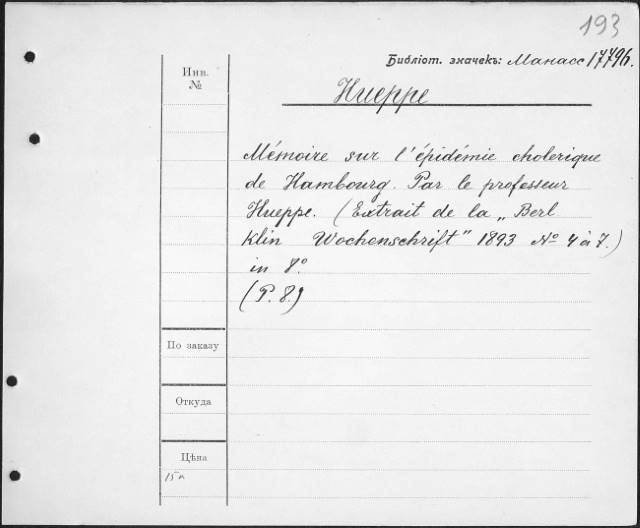 193
Библіот. значекъ: Манасс 17796.
Инв.
№
Hueppe
Mémoire sur l'épidémie cholerique
de Hambourg. Par le professeur
Hueppe. (Extrait de la „Berl
Klin Wochenschrift" 1893 No 4 à 7.)
in 8°.
(P. 8.)
По заказу
Откуда
Цѣна